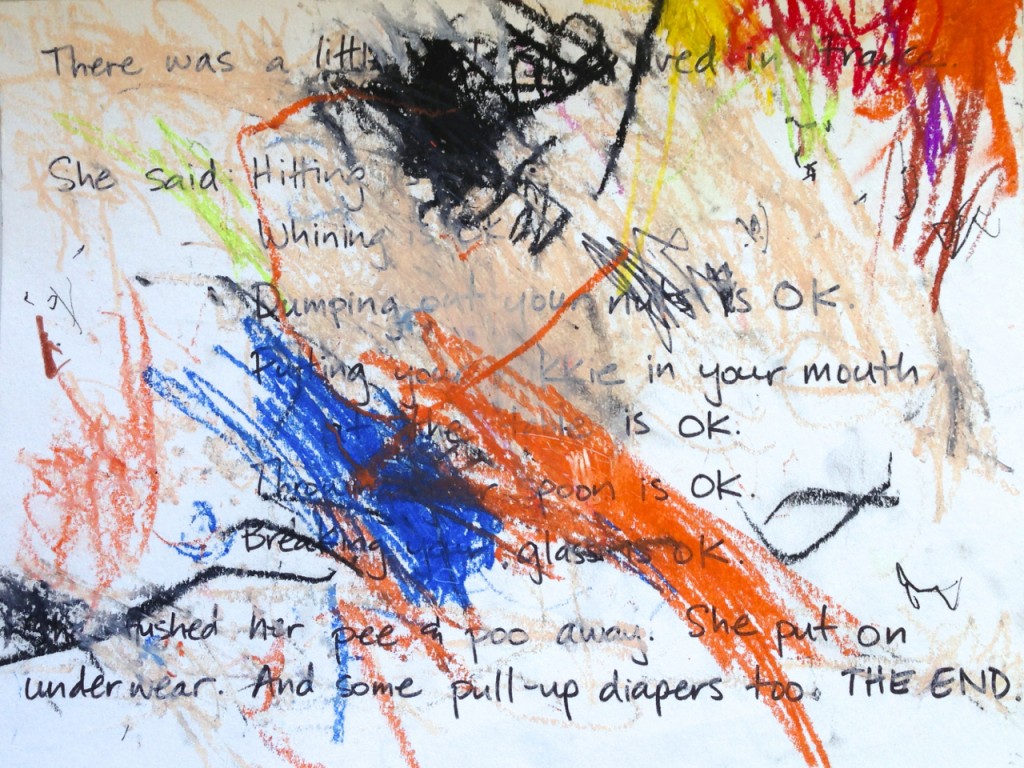 There was a little lived in France.
She said: Hitting is
Whining is OK
Dumping out your nuts is OK.
Putting your in your mouth
at the table is OK.
Throwing your spoon is OK.
Breaking your glass is OK.
She flushed her pee & poo away. She put on
underwear. And some pull-up diapers too. THE END.